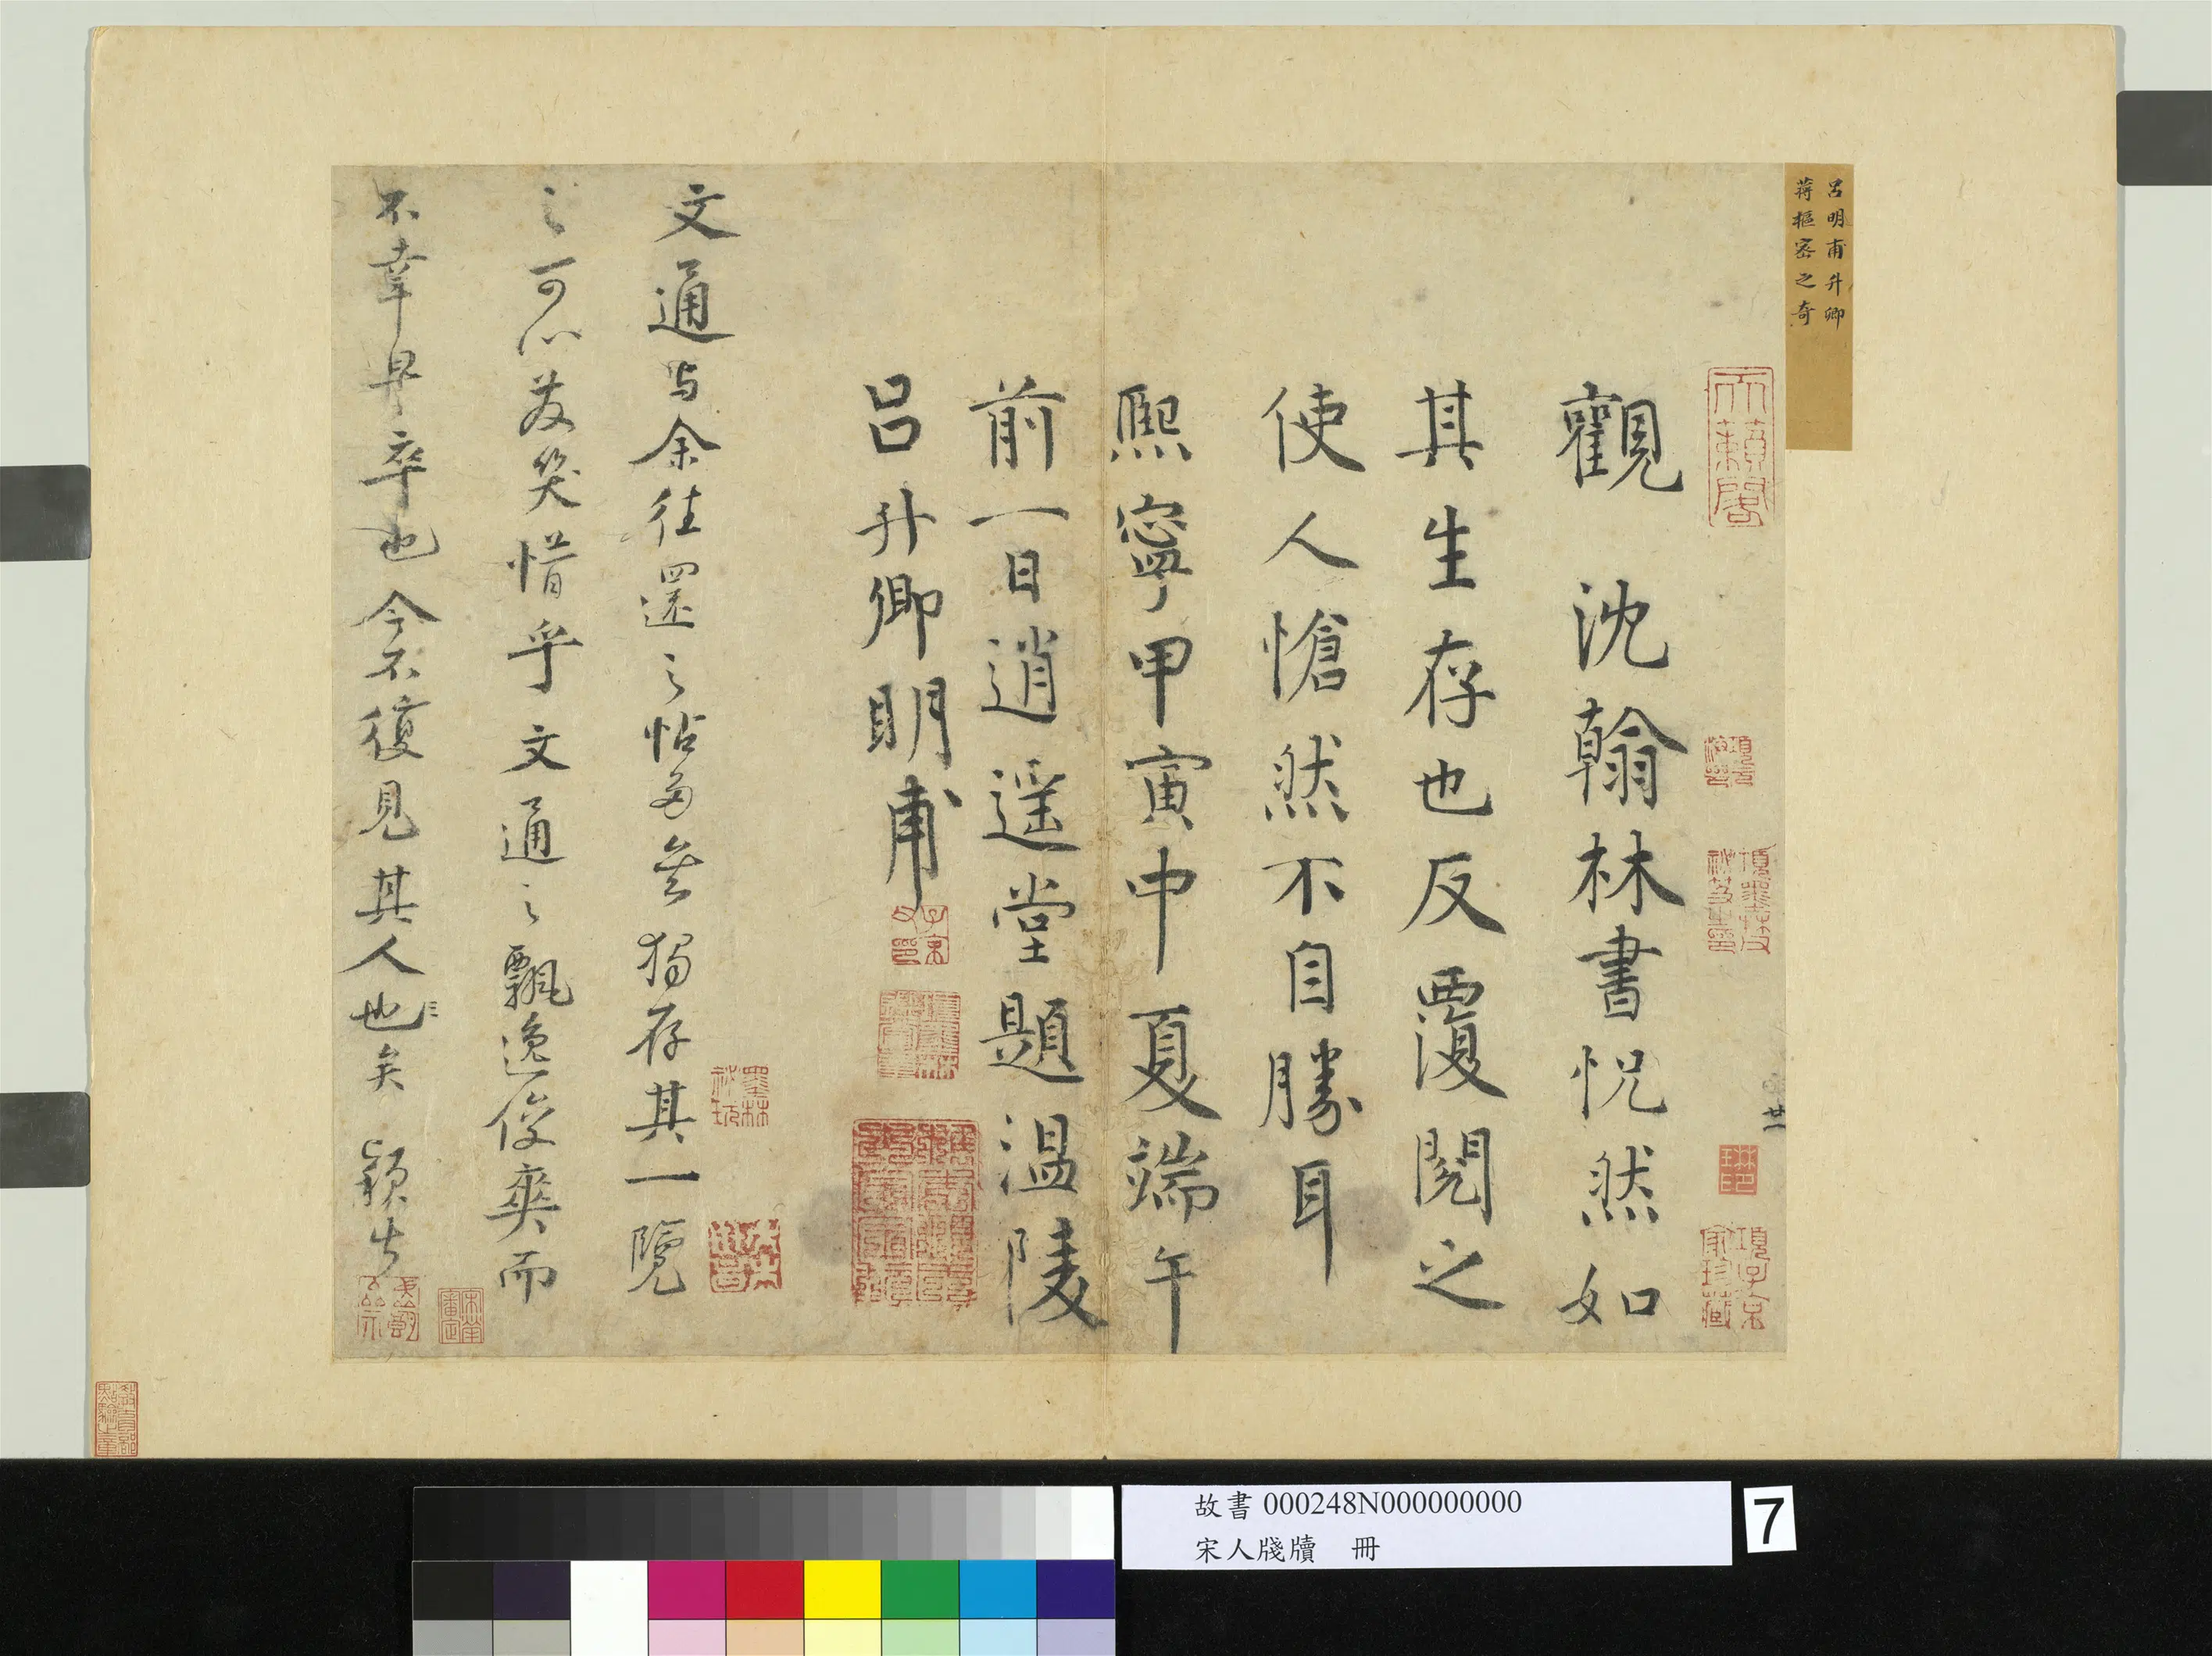 呂明甫升卿
蔣樞密之奇
觀 沈翰林書怳然如
其生存也反覆閱之
使人愴然不自勝耳
熙寧甲寅中夏端午
前一日逍遥堂題温陵
呂升卿明甫
文通与余往還之帖多矣獨存其一覽
之可以發笑惜乎文通之飄逸俊爽而
不幸早卒也今不復見其人也矣 穎
廿一
天籟閣
項子京家珍藏
子京父印
墨林祕玩
故書 000248N000000000
宋人牋牘 冊
7